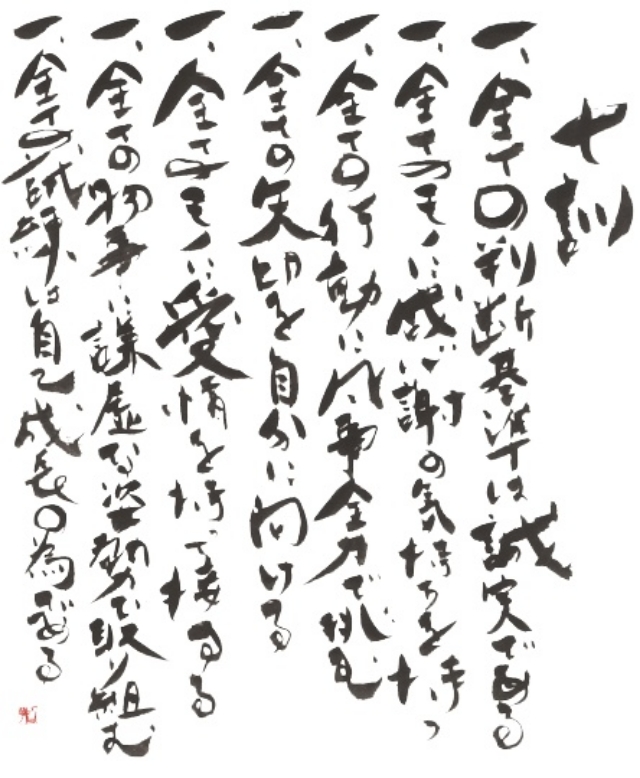 七訓
一、全ての判断基準は誠実である
一、全てのモノに感謝の気持ちを持つ
一、全ての行動に全力で挑む
一、全ての矢印を自分に向ける
一、全てモノに愛情を持って接する
一、全ての物事に謙虚な姿勢で取り組む
一、全ての試練は自己成長の為である